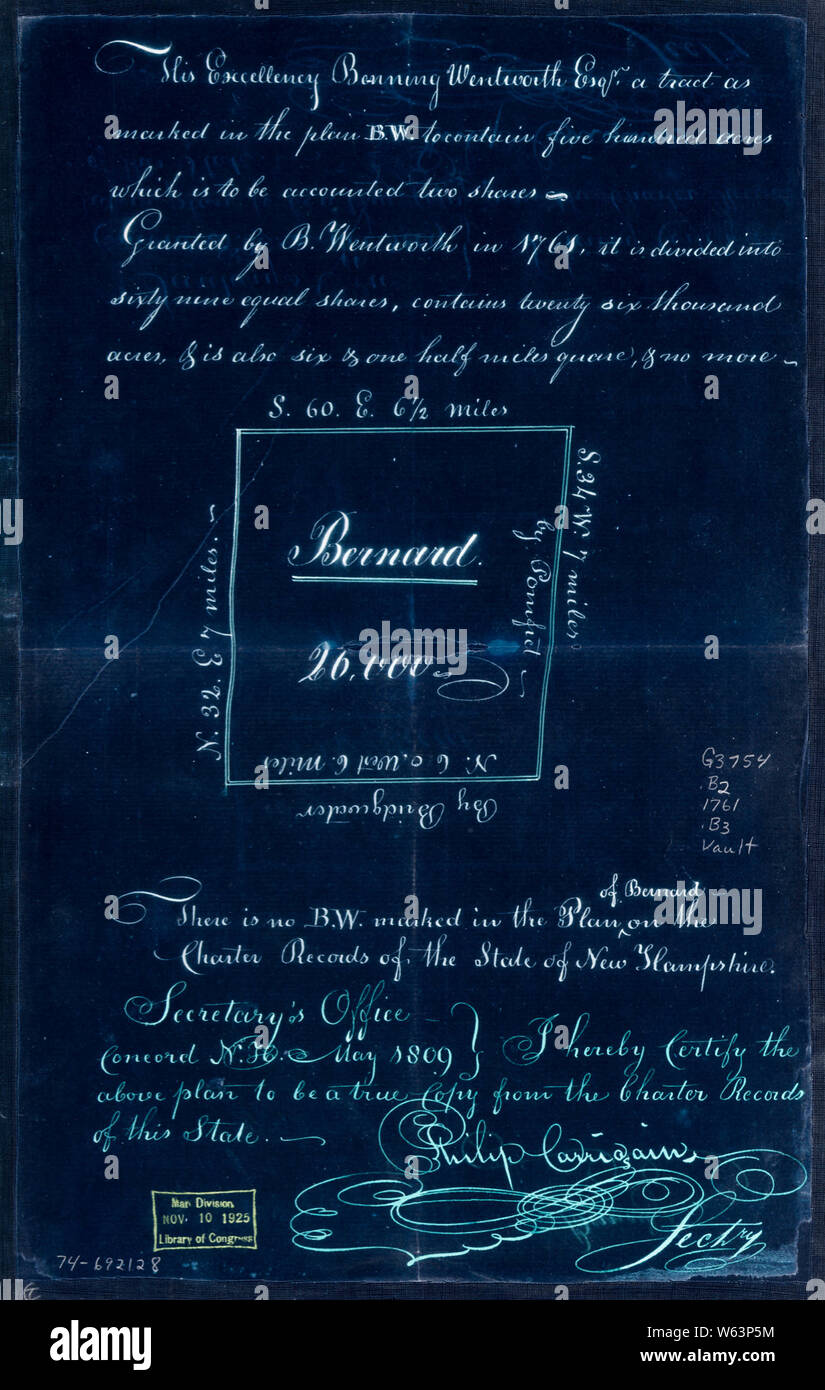 His Excellency Benning Wentworth Esqr. a tract as
marked in the plan B.W. to contain five hundred acres
which is to be accounted two shares ~
Granted by B. Wentworth in 1761, it is divided into
sixty nine equal shares, contains twenty six thousand
acres, & is also six & one half miles quare, & no more ~
S. 60. E. 6 1/2 miles
N. 32. E 7 miles. ~
Bernard.
26,000
S. 34 W. 7 miles
by Pomfrit ~
N. 60. West 6. Miles
By Bridgwater
G3754
.B2
1761
.B3
Vault
of Bernard
There is no B.W. marked in the Plan ^ on the
Charter Records of, the State of New Hampshire.
Secretary's Office
Concord N.H. May 1809 } I hereby Certify the
above plan to be a true Copy from the Charter Records
of this State. ~
Philip Carrigain,
Sectry
Map Division
NOV. 10 1925
Library of Congress
74-692128
alamy
a
alamy
Image ID: W63P5M
www.alamy.com